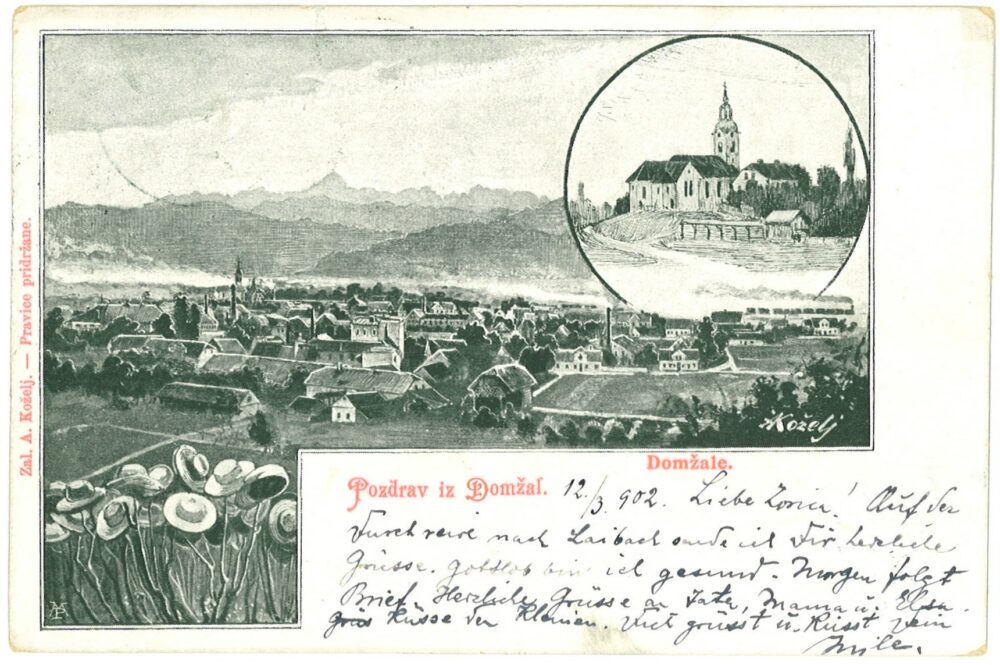 Zal. A. Koželj. — Pravice pridržane.
Koželj
Domžale.
Pozdrav iz Domžal. 12./3. 902. Liebe Zorica! Auf der
Durchreise nach Laibach sende ich Dir herzliche
Grüsse. Gottlob bin ich gesund. Morgen folgt
Brief. Herzliche Grüsse an Tata, Mama u. Elsa.
Küsse den Kleinen. Viel grüsst u. küsst Dein
Mile.